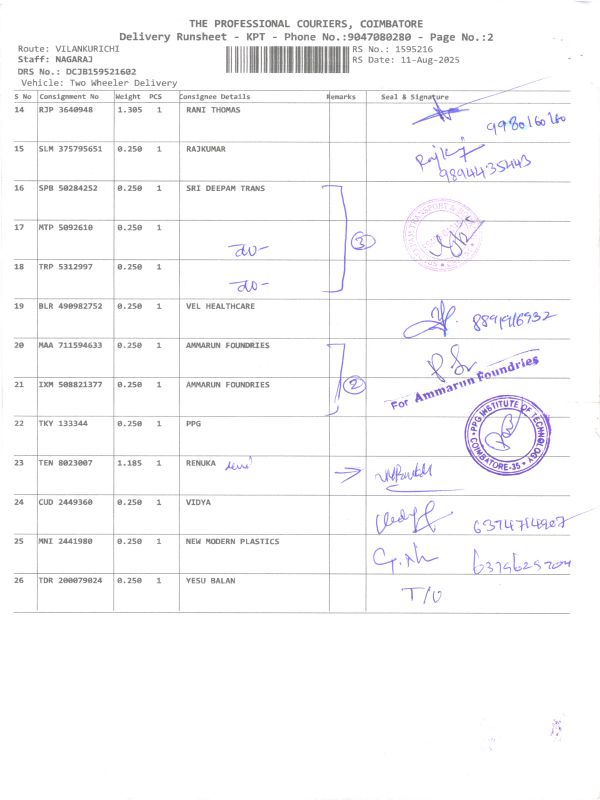 THE PROFESSIONAL COURIERS, COIMBATORE
Delivery Runsheet - KPT - Phone No.:9047080280 - Page No.:2
Route: VILANKURICHI RS No.: 1595216
Staff: NAGARAJ RS Date: 11-Aug-2025
DRS No.: DCJB159521602
Vehicle: Two Wheeler Delivery
S No Consignment No Weight PCS Consignee Details Remarks Seal & Signature
14 RJP 3640948 1.305 1 RANI THOMAS
9980160160
15 SLM 375795651 0.250 1 RAJKUMAR
9894435443
16 SPB 50284252 0.250 1 SRI DEEPAM TRANS
17 MTP 5092610 0.250 1 3
-do-
18 TRP 5312997 0.250 1
-do-
19 BLR 490982752 0.250 1 VEL HEALTHCARE
20 MAA 711594633 0.250 1 AMMARUN FOUNDRIES
21 IXM 508821377 0.250 1 AMMARUN FOUNDRIES 2
For Ammarun Foundries
22 TKY 133344 0.250 1 PPG
PPG INSTITUTE OF TECHNOLOGY
COIMBATORE-35
23 TEN 8023007 1.185 1 RENUKA
24 CUD 2449360 0.250 1 VIDYA
25 MNI 2441980 0.250 1 NEW MODERN PLASTICS
26 TDR 200079024 0.250 1 YESU BALAN
T/O